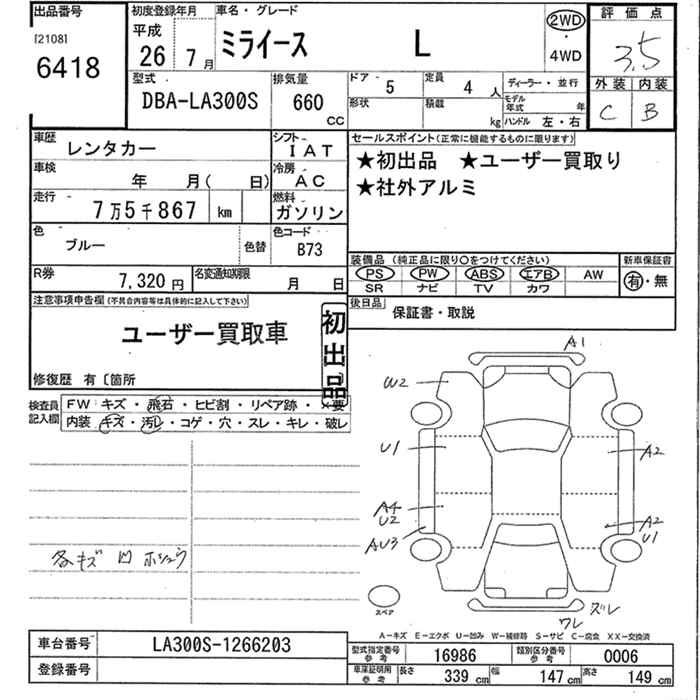 出品番号
[2108]
6418
初度登録年月
平成 26 年 7 月
車名・グレード
ミライース L
2WD
・
4WD
評価点
3.5
外装 内装
C B
型式
DBA-LA300S
排気量
660 cc
ドア 5
形状
定員 4 人
積載 kg
ディーラー・並行
モデル年式 年
ハンドル 左・右
車歴 レンタカー
シフト IAT
車検 年 月( 日)
冷房 AC
走行 7万5千867 km
燃料 ガソリン
色 ブルー 色替
色コード B73
R券 7,320円
名変通知期限 月 日
セールスポイント(正常に機能するものに限ります)
★初出品 ★ユーザー買取り
★社外アルミ
装備品 (純正品に限り○をつけてください)
PS PW ABS エアB AW
SR ナビ TV カワ
新車保証書
有・無
後日品 保証書・取説
注意事項申告欄(不具合内容等は具体的に記入して下さい)
ユーザー買取車
初出品
修復歴 有〔箇所
検査員記入欄
FW キズ・飛石・ヒビ割・リペア跡・×要
内装 キズ・汚レ・コゲ・穴・スレ・キレ・破レ
各キズ 凹 ホシュウ
A1
W2
U1
A2
A4
U2
A2
U1
AU3
スペア
ズレ
ワレ
A−キズ E−エクボ U−凹み W−補修跡 S−サビ C−腐食 XX−交換済
車台番号 LA300S-1266203
登録番号
型式指定番号 参考 16986
類別区分番号 参考 0006
車庫証明用 参考 長さ 339 cm 幅 147 cm 高さ 149 cm